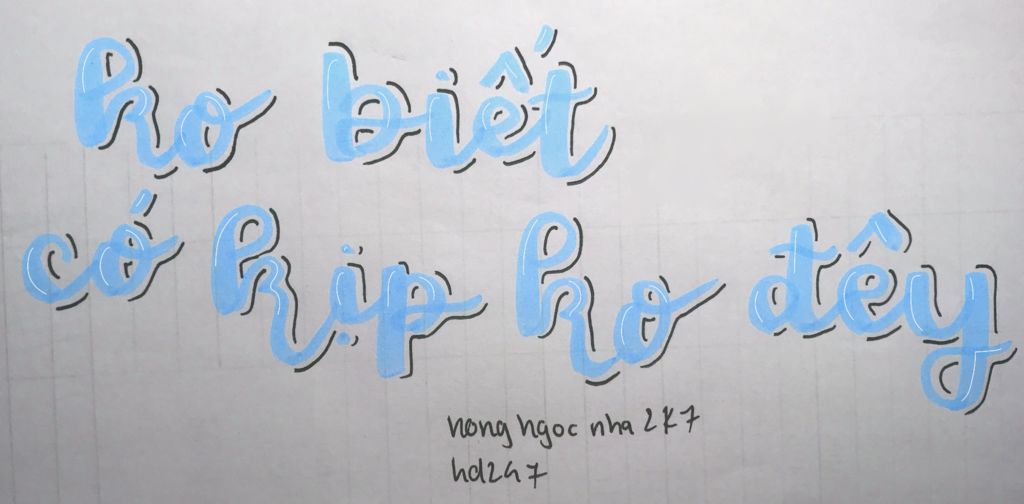 ko biết
có kịp ko đêy
nong ngoc nha 2k7
hd247